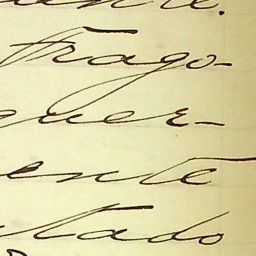 ente.
Trago-
guer-
ente
tado